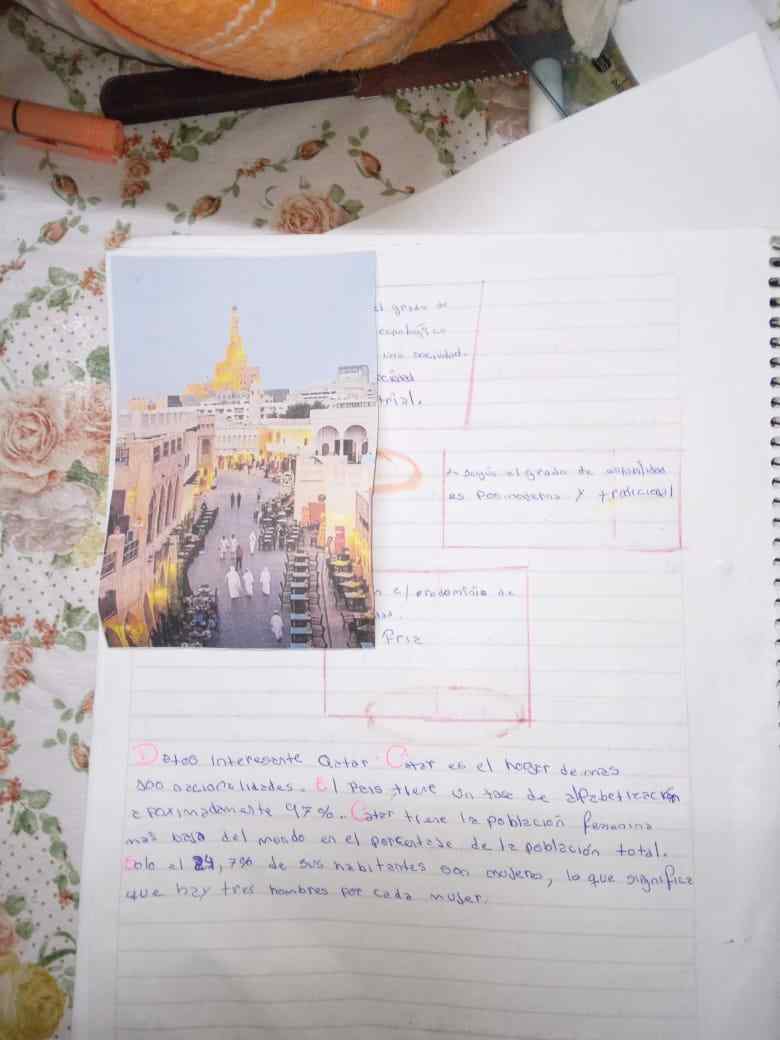 el grado de
una sociedad.
trial.
según el grado de
es Posmoderna y tradicional
el predominio de
Friz
Datos interesante Qatar. Catar es el hogar de mas
300 nacionalidades. El Pais tiene un tasa de alfabetización
aproximadamente 97%. Catar tiene la población femenina
mas baja del mundo en el porcentaje de la población total.
Solo el 24,7% de sus habitantes son mujeres, lo que significa
que hay tres hombres por cada mujer.